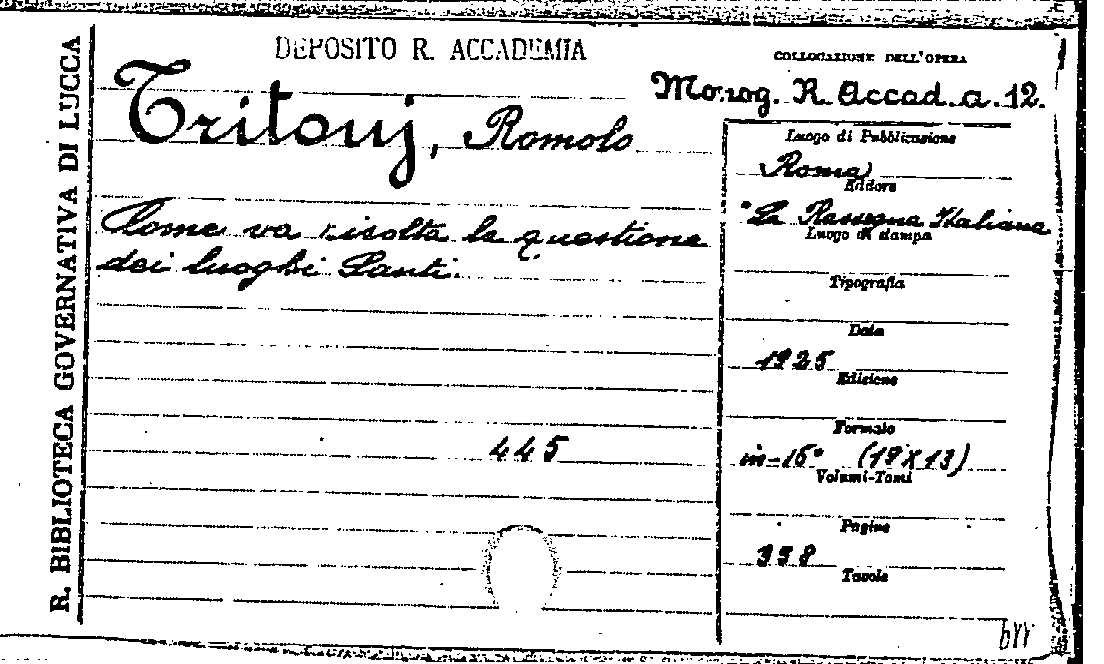 R. BIBLIOTECA GOVERNATIVA DI LUCCA
DEPOSITO R. ACCADEMIA
COLLOCAZIONE DELL'OPERA
Monog. R. Accad. a. 12.
Tritonj, Romolo
Come va risolta la questione
dei luoghi Santi.
445
Luogo di Pubblicazione
Roma
Editore
"La Rassegna Italiana
Luogo di stampa
Tipografia
Data
1925
Edizione
Formato
in-16° (19X13)
Volumi-Tomi
Pagine
338
Tavole